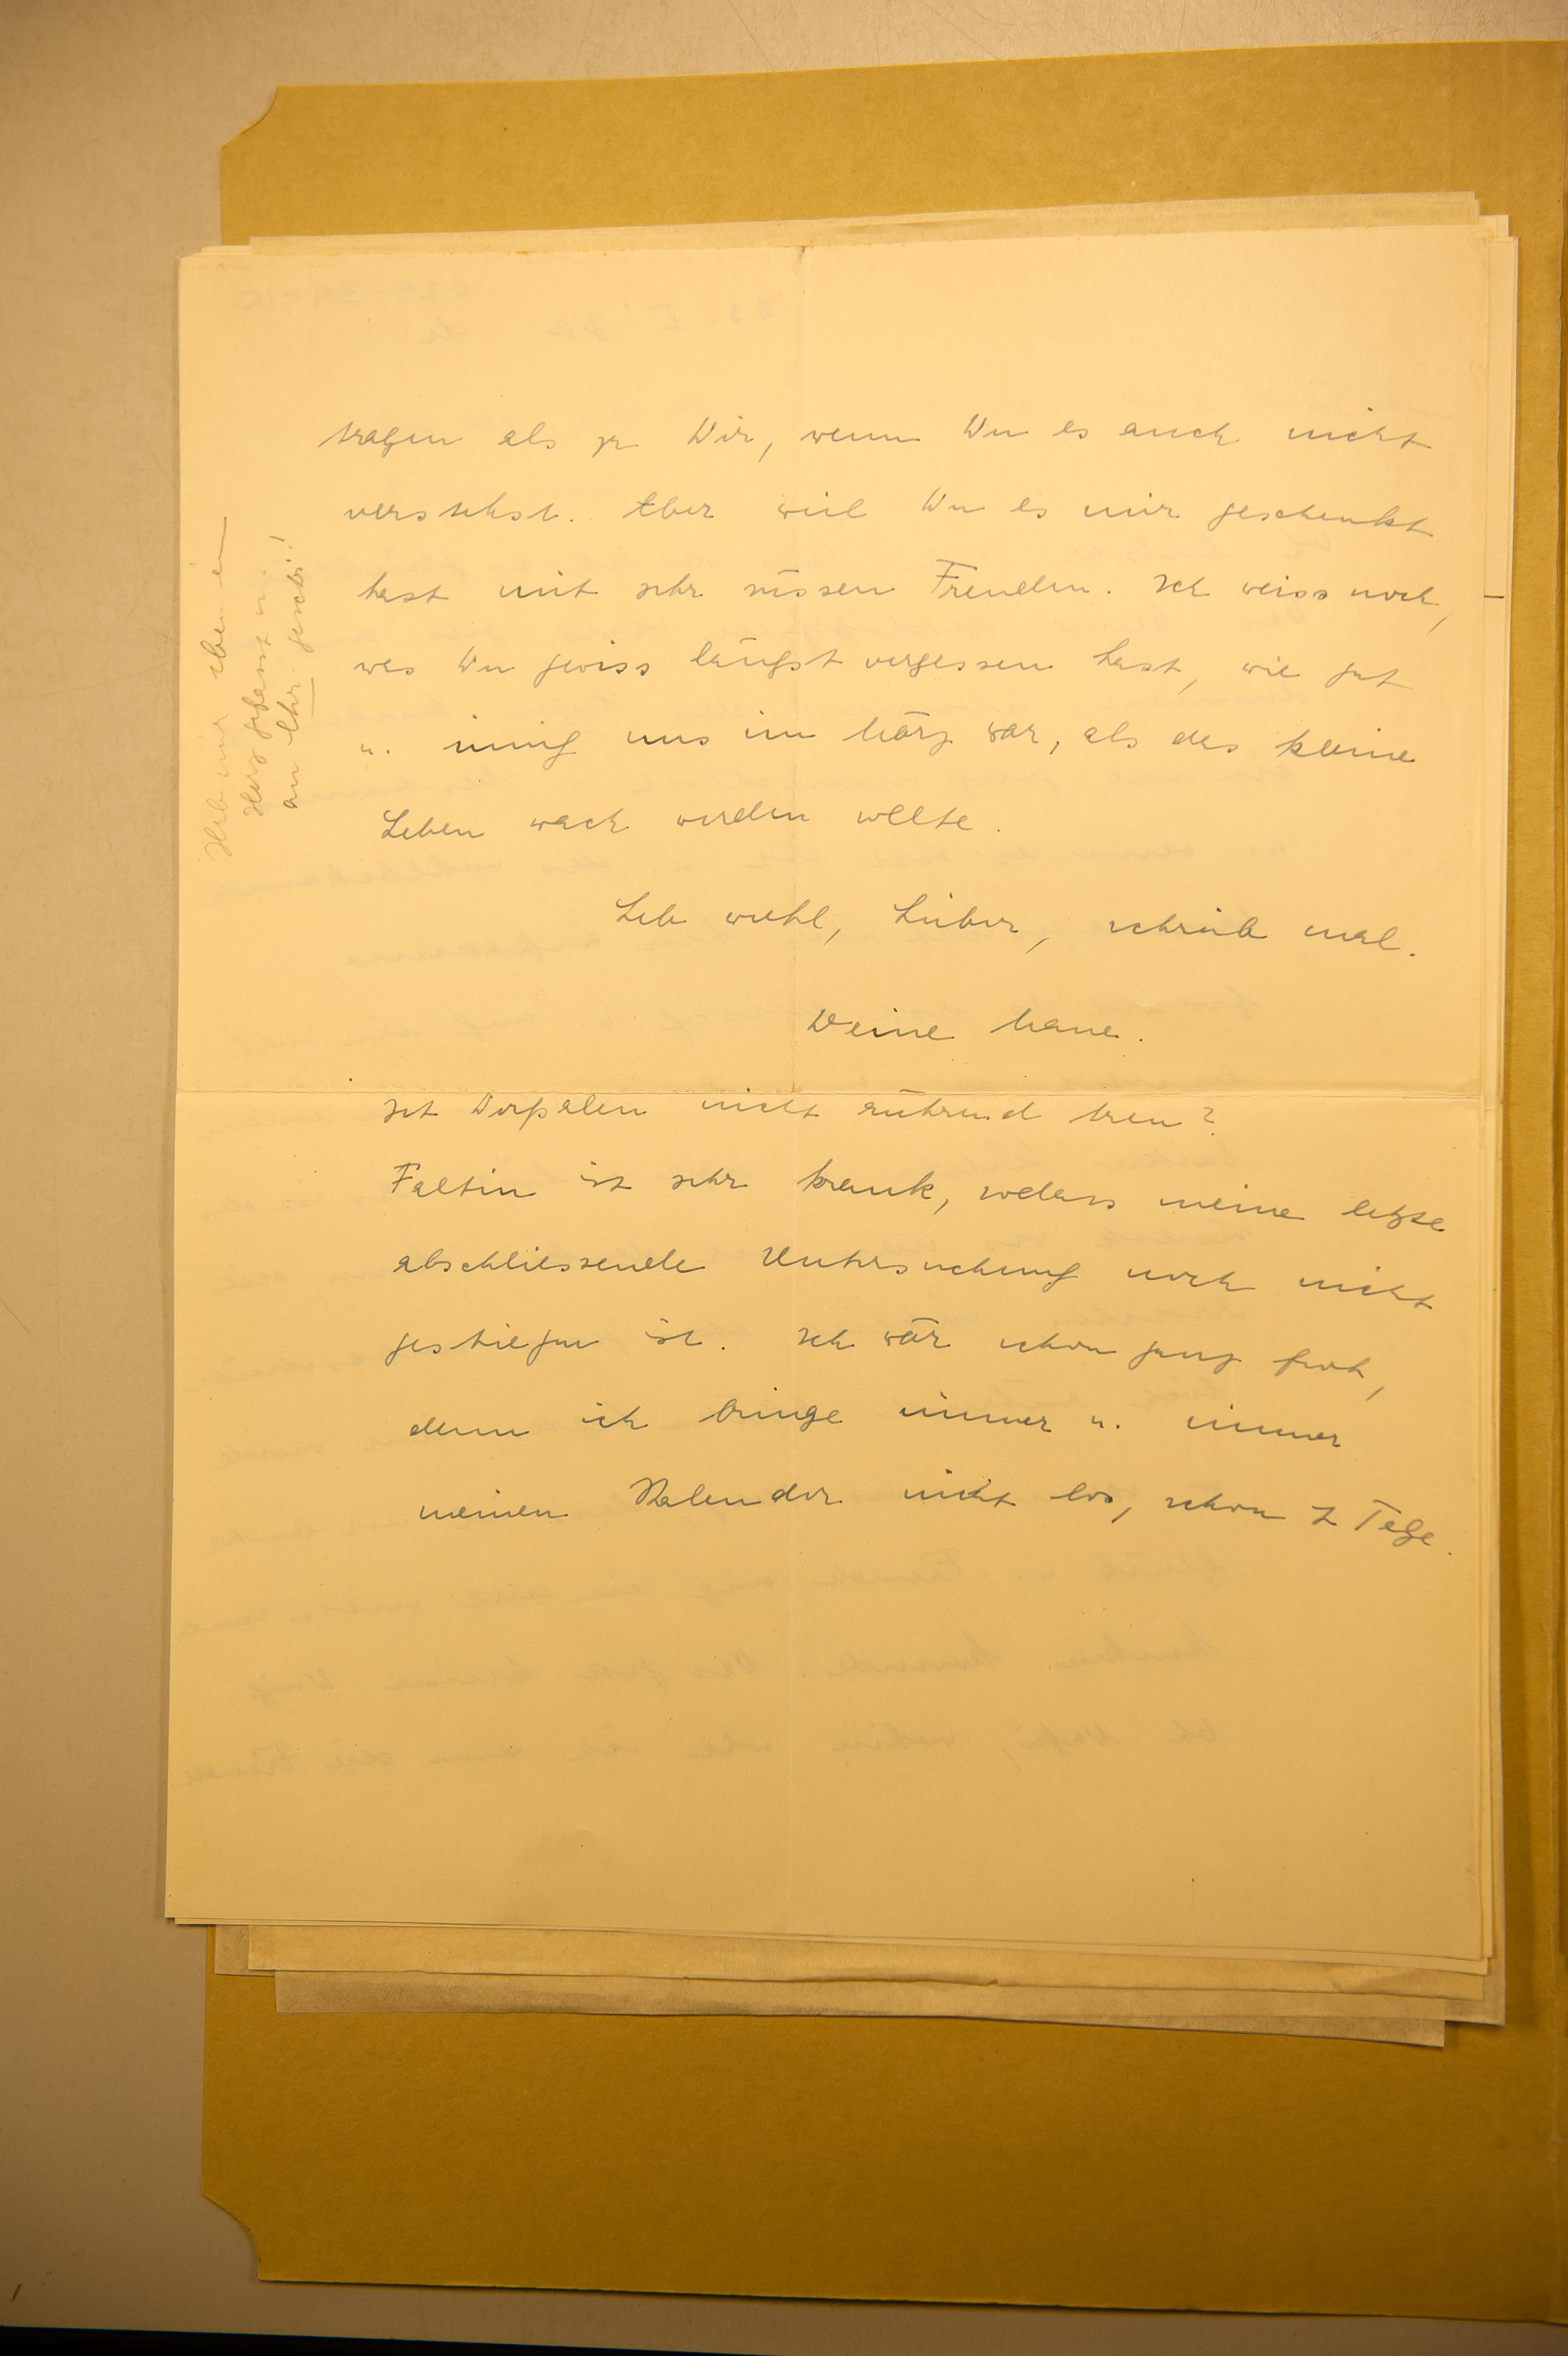 tragen als zu Dir, wenn Du es auch nicht
verstehst. Aber weil Du es mir geschenkt
hast mit sehr süssen Freuden. Ich weiss noch,
was Du gewiss längst vergessen hast, wie gut
u. innig uns im März war, als das kleine
Leben wach werden wollte.
Leb wohl, Lieber, schreib mal.
Deine Mane.
Ist Dorpalen nicht rührend treu?
Faltin ist sehr krank, sodass meine letzte
abschliessende Untersuchung noch nicht
gestiegen ist. Ich wär schon ganz froh,
denn ich bringe immer u. immer
meinen Kalender nicht los, schon 7 Tage.
Hab mir eben ein
Herz gefasst u.
an Chr. geschr.!